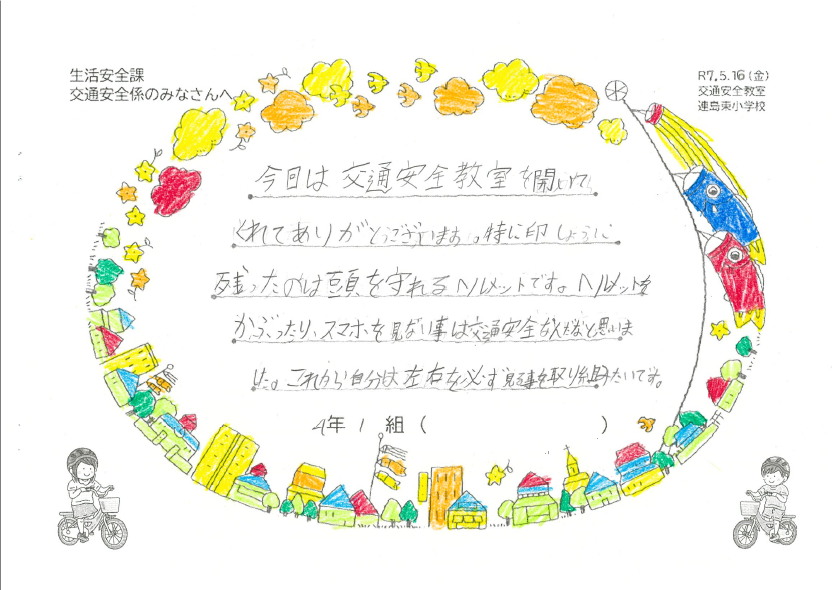 生活安全課
交通安全係のみなさんへ
R7.5.16(金)
交通安全教室
連島東小学校
今日は交通安全教室を開いて
くれてありがとうございます。特に印しょうに
残ったのは頭を守れるヘルメットです。ヘルメットを
かぶったり、スマホを見ない事は交通安全なんだなと思いま
した。これから自分は左右を必ず見る事を取り組みたいです。
4年 1 組 ( )